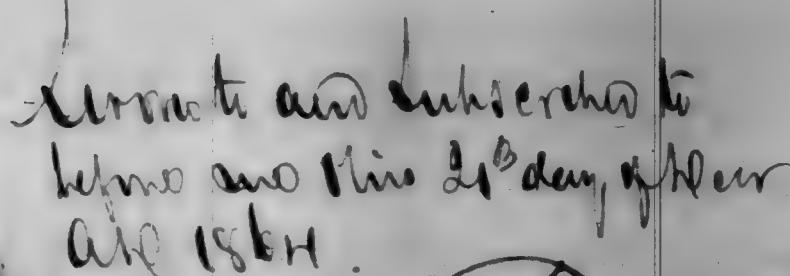 Sworn to and subscribed to
before me this 21st day of
A.D. 18